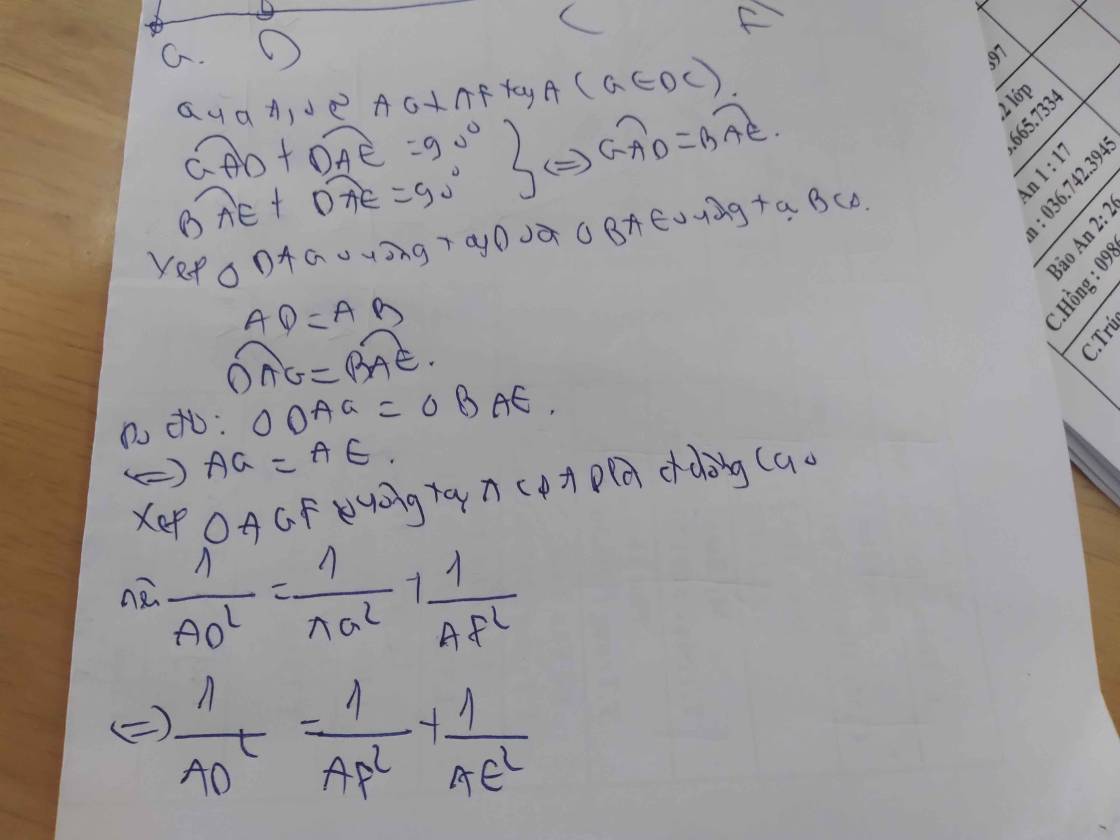 G. D C F
Qua A, vẽ AG ⊥ AF tại A (G ∈ DC).
GAD + DAE = 90°
BAE + DAE = 90° } <=> GAD = BAE.
Xét △ DAG vuông tại D và △ BAE vuông tại B có.
AD = AB
DAG = BAE.
Do đó: △ DAG = △ BAE.
<=> AG = AE.
Xét △ AGF vuông tại A có AD là đường cao
nên 1/AD² = 1/AG² + 1/AF²
<=> 1/AD² = 1/AF² + 1/AE²
2 lớp
.665.7334
An 1 : 17
: 036.742.3945
Bảo An 2: 26
C.Hồng : 0986
C.Trúc